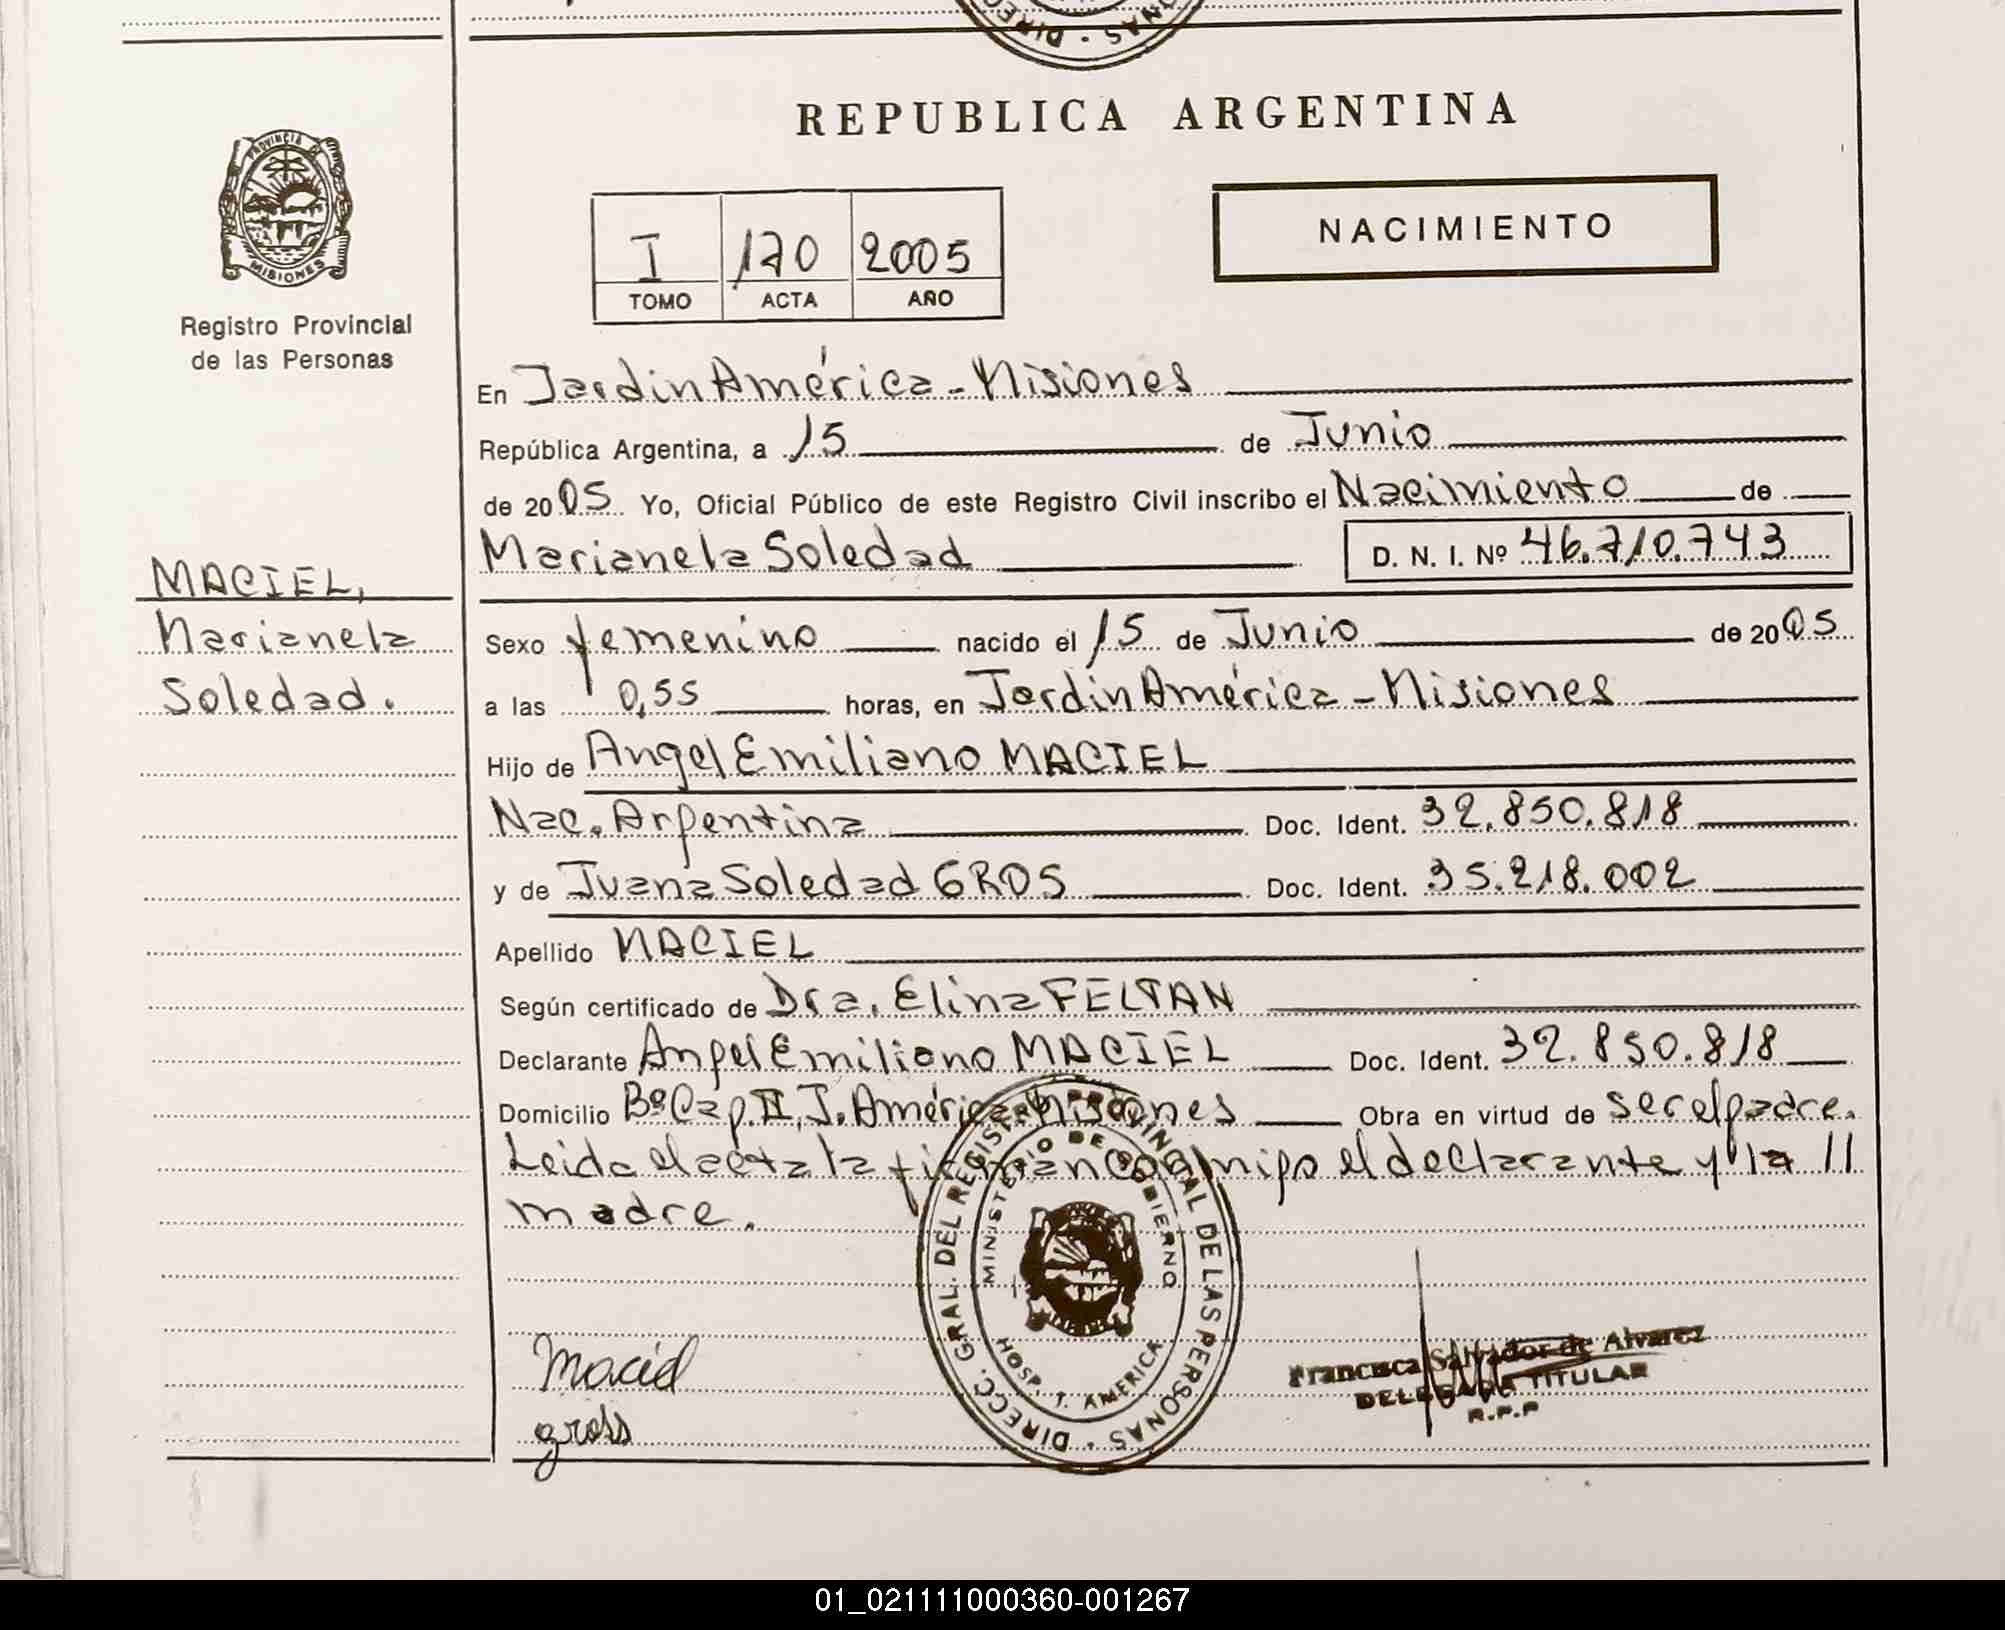 REPUBLICA ARGENTINA
PROVINCIA D
MISIONES
Registro Provincial
de las Personas
I 170 2005
TOMO ACTA AÑO
NACIMIENTO
En Jardin América - Misiones
República Argentina, a 15 de Junio
de 2005 Yo, Oficial Público de este Registro Civil inscribo el Nacimiento de
Marianela Soledad D. N. I. Nº 46.710.743
MACIEL,
Marianela
Soledad.
Sexo femenino nacido el 15 de Junio de 2005
a las 0,55 horas, en Jardin América - Misiones
Hijo de Angel Emiliano MACIEL
Nac. Argentina Doc. Ident. 32.850.818
y de Juana Soledad GROS Doc. Ident. 35.218.002
Apellido MACIEL
Según certificado de Dra. Elina FELTAN
Declarante Angel Emiliano MACIEL Doc. Ident. 32.850.818
Domicilio Bº Cap. II, J. América - Misiones Obra en virtud de ser el padre.
Leida el acta la firman conmigo el declarante y la //
madre.
DIRECC. GRAL. DEL REGISTRO PROVINCIAL DE LAS PERSONAS
MINISTERIO DE GOBIERNO
HOSP. T. AMERICA
Maciel
gross
Francisca Salvador de Alvarez
DELEGADA TITULAR
R.P.P
01_021111000360-001267